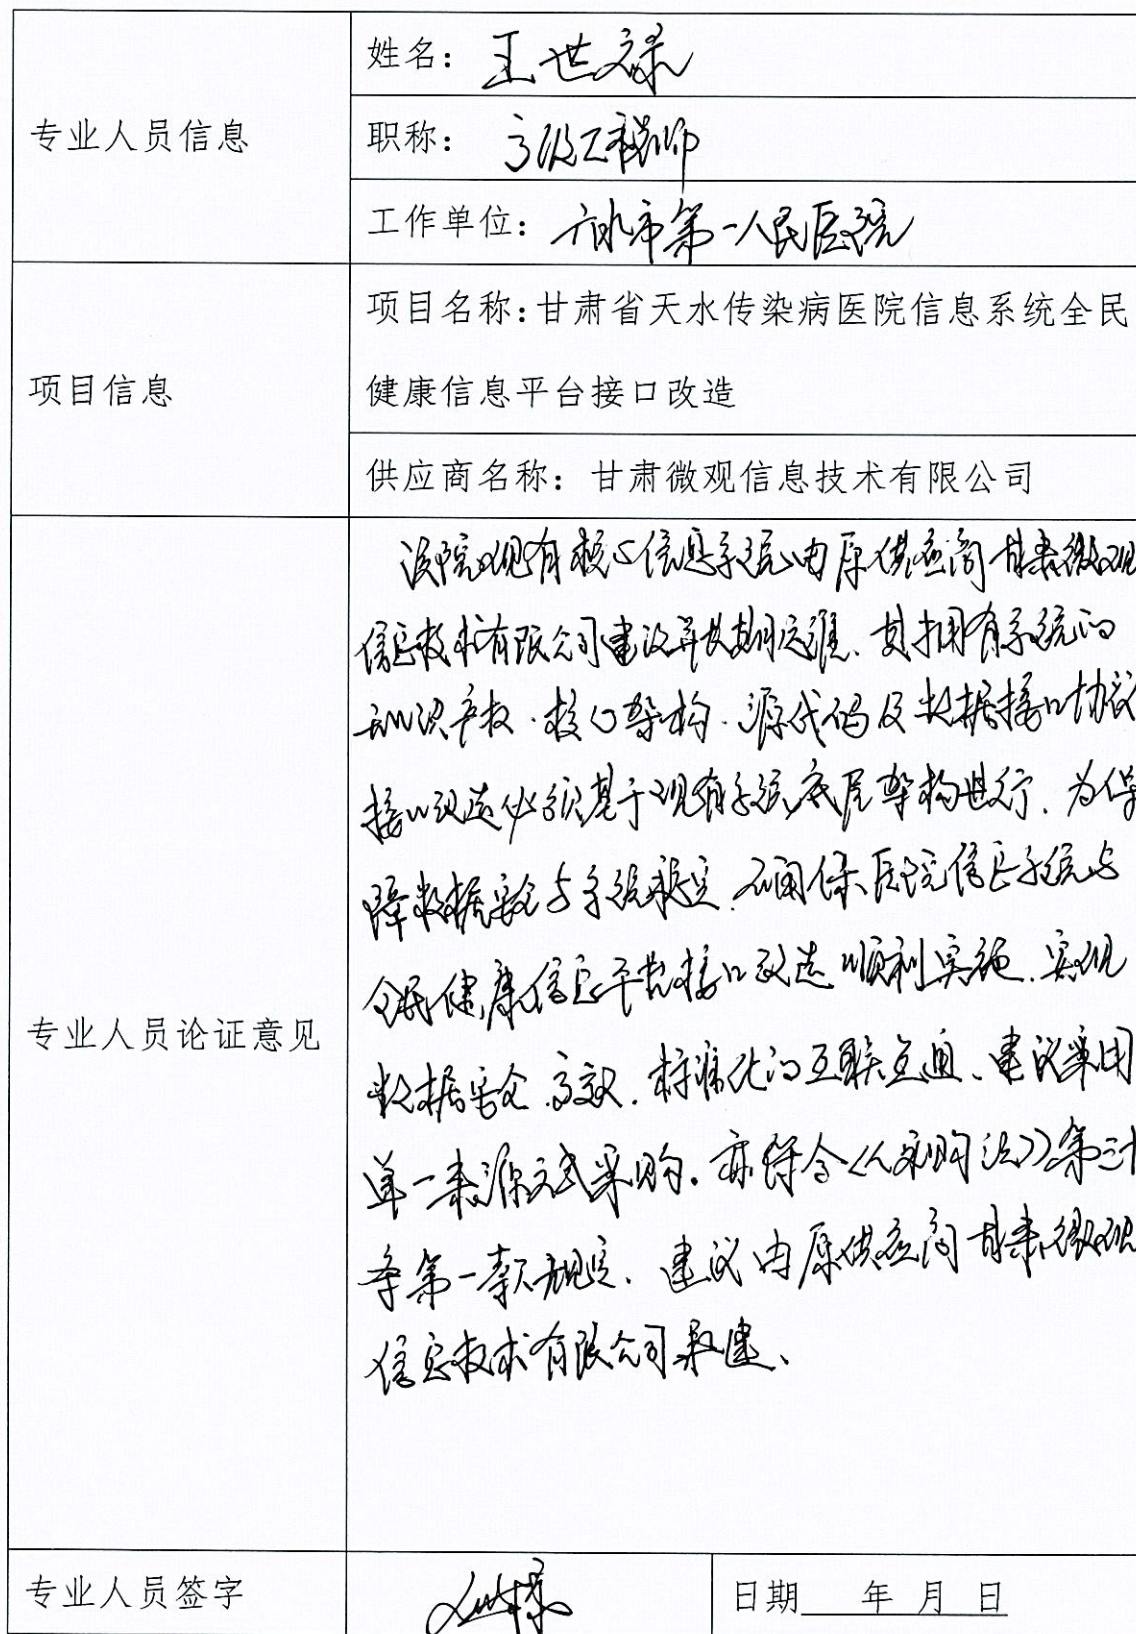 专业人员信息
姓名：王世禄
职称：高级工程师
工作单位：天水市第一人民医院
项目信息
项目名称：甘肃省天水传染病医院信息系统全民
健康信息平台接口改造
供应商名称：甘肃微观信息技术有限公司
专业人员论证意见
该院现有核心信息系统由原供应商甘肃微观
信息技术有限公司建设并长期运维、其拥有系统的
知识产权、核心架构、源代码及数据接口协议
接口改造必须基于现有系统底层架构进行、为保
障数据安全与系统稳定、确保医院信息系统与
全民健康信息平台接口改造顺利实施、实现
数据安全、高效、标准化的互联互通、建议采用
单一来源方式采购。亦符合《采购法》第三十
条第一款规定、建议由原供应商甘肃微观
信息技术有限公司承建、
专业人员签字
日期 年 月 日